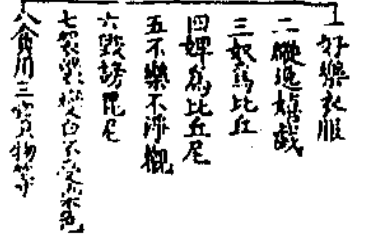 一好樂衣服
二縱逸嬉戲
三奴爲比丘
四婢爲比丘尼
五不樂不淨觀
六毀謗毘尼
七袈裟變白不受染色
八食用三寶物等